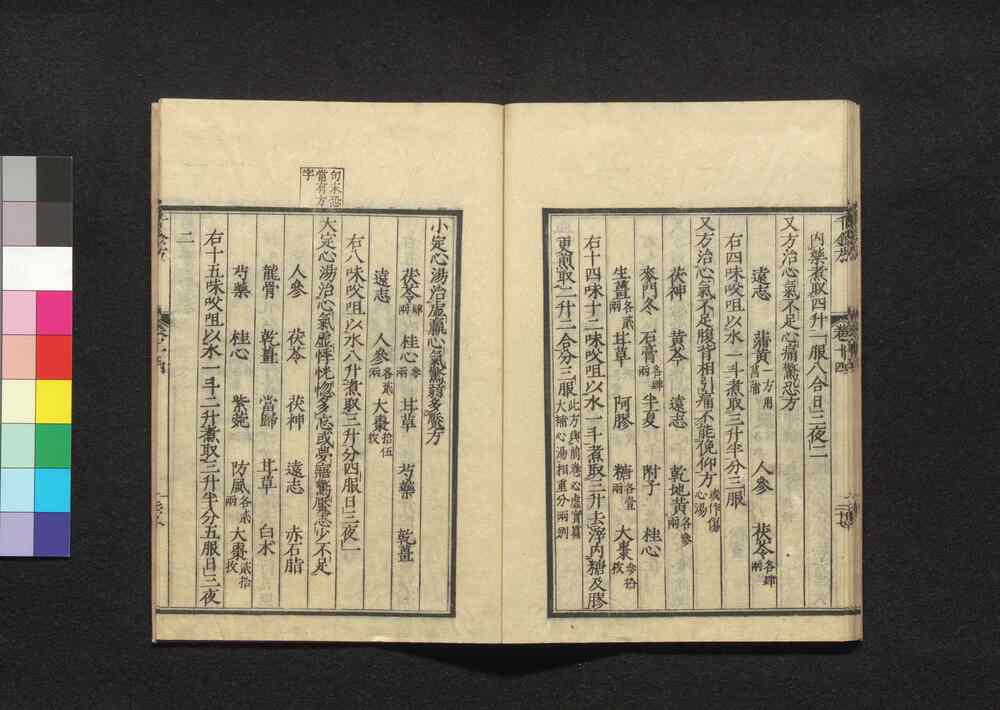 內藥煮取四升一服八合日三夜二
又方治心氣不足心痛驚恐方
遠志 蒲黃一方用菖蒲 人參 茯苓各肆兩
右四味㕮咀以水一斗煮取三升半分三服
又方治心氣不足腹背相引痛不能俛仰方或作傷心湯
茯神 黃芩 遠志 乾地黃各參兩
麥門冬 石膏各肆兩 半夏 附子 桂心
生薑各貳兩 甘草 阿膠 糖各壹兩 大棗參拾枚
右十四味十二味㕮咀以水一斗煮取三升去滓內糖及膠
更煎取二升二合分三服此方與前卷心虛實篇大補心湯相重分兩別
千金方 卷十四
小定心湯治虛羸心氣驚弱多魘方
茯苓肆兩 桂心參兩 甘草 芍藥 乾薑
遠志 人參各貳兩 大棗拾伍枚
右八味㕮咀以水八升煮取三升分四服日三夜一
句末恐當有方字
大定心湯治心氣虛悸恍惚多忘或夢寤驚魘志少不足
人參 茯苓 茯神 遠志 赤石脂
龍骨 乾薑 當歸 甘草 白朮
芍藥 桂心 紫菀 防風各貳兩 大棗貳拾枚
右十五味㕮咀以水一斗二升煮取三升半分五服日三夜
二